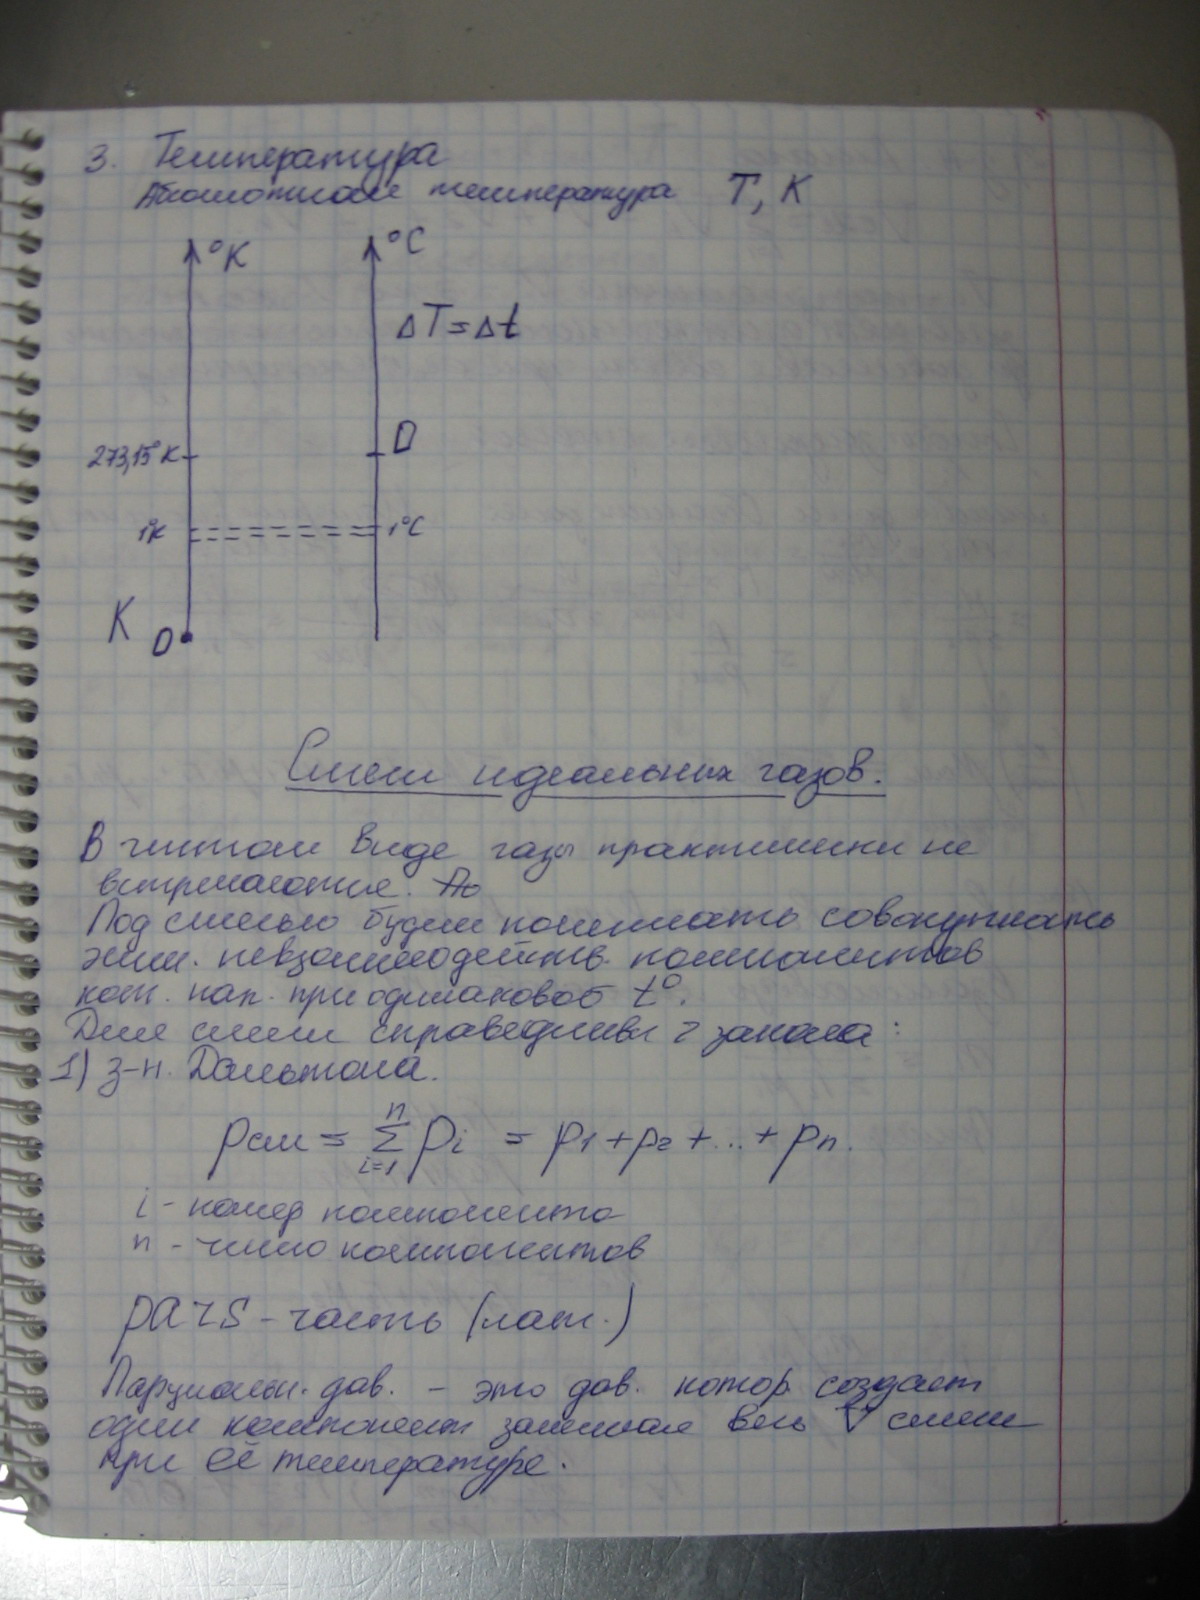 3. Температура
Абсолютная температура T, K
°K °C
ΔT = Δt
273,15°K 0
1°K 1°C
K 0
Смеси идеальных газов.
В чистом виде газы практически не
встречаются.
Под смесью будем понимать совокупность
хим. невзаимодейств. компонентов
при одинаковой t°.
Для смеси справедливы 2 закона:
1) з-н. Дальтона.
pсм = Σ pi = p1 + p2 + ... + pn.
n
i=1
i - номер компонента
n - число компонентов
pars - часть (лат.)
Парциальн. дав. - это дав. котор. создает
один компонент занимая весь V смеси
при её температуре.